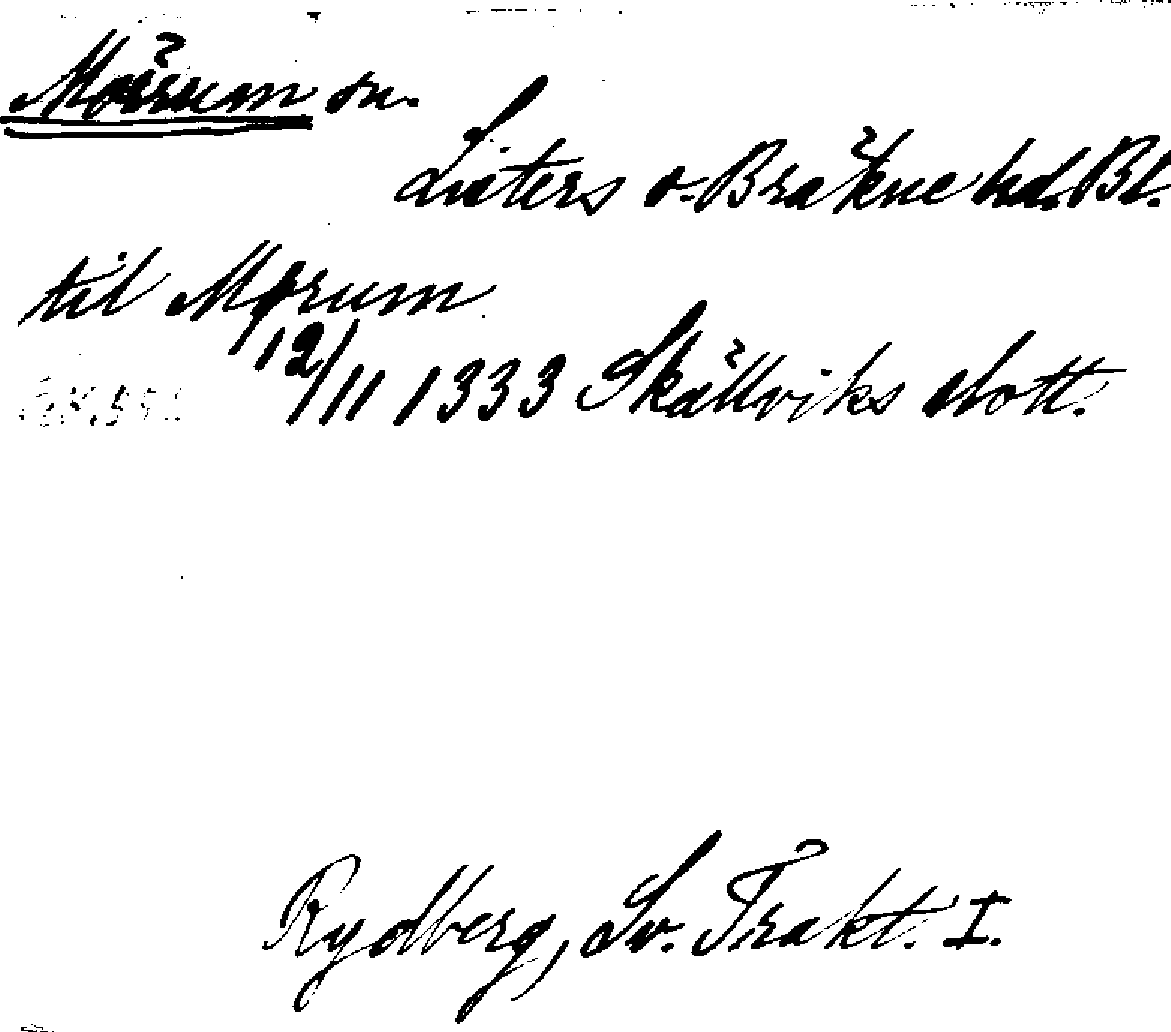 Mörrum sn.
Listers o. Bräkne hd. Bl.
til Mørum
12/11 1333 Skällviks slott.
Rydberg, Sv. Trakt. I.